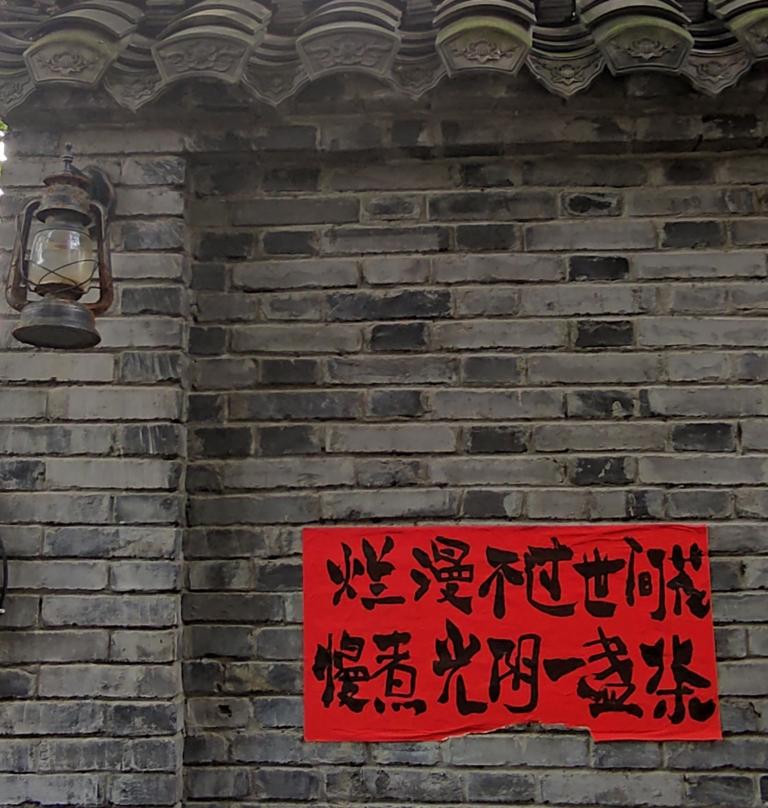 烂漫不过世间花
慢煮光阴一盏茶